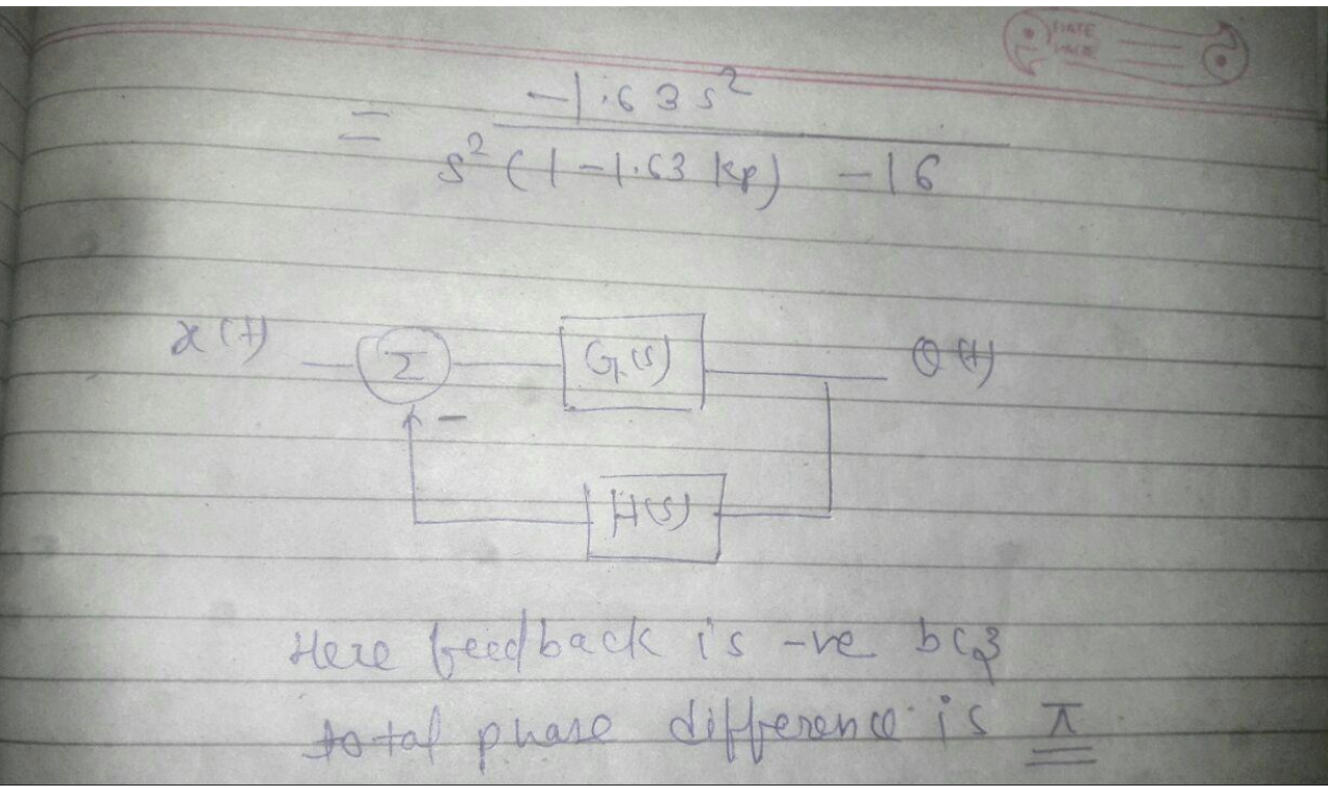 DATE
PAGE
-1.63 s²
=
s² (1 - 1.63 kp) - 16
x(t)
Σ
G(s)
θ(t)
-
H(s)
Here feedback is -ve bcz
total phase difference is π